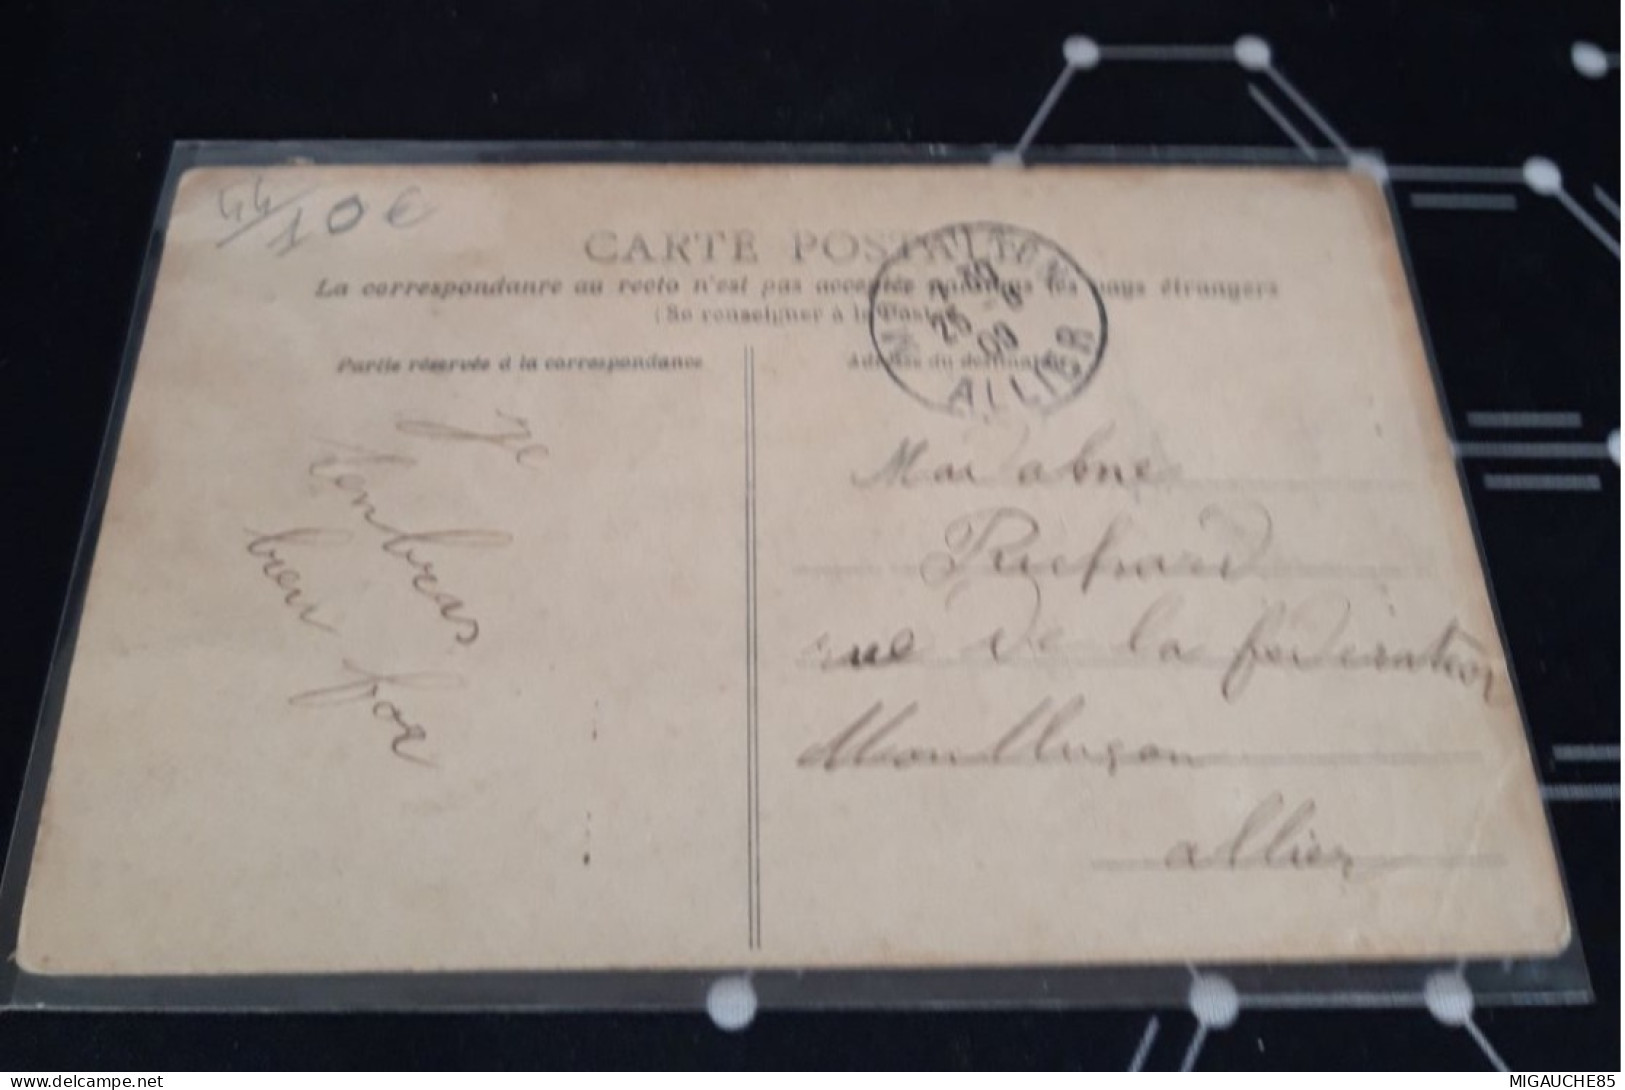 44/10€
CARTE POSTALE
La correspondance au recto n'est pas acceptée par tous les pays étrangers
(Se renseigner à la Poste)
Partie réservée à la correspondance
Adresse du destinataire
7-30
25 -6
09
ALLIER
Je
t'embras
bien for
Madabne
Richard
rue de la federation
Monllugon
allier
www.delcampe.net
MIGAUCHE85